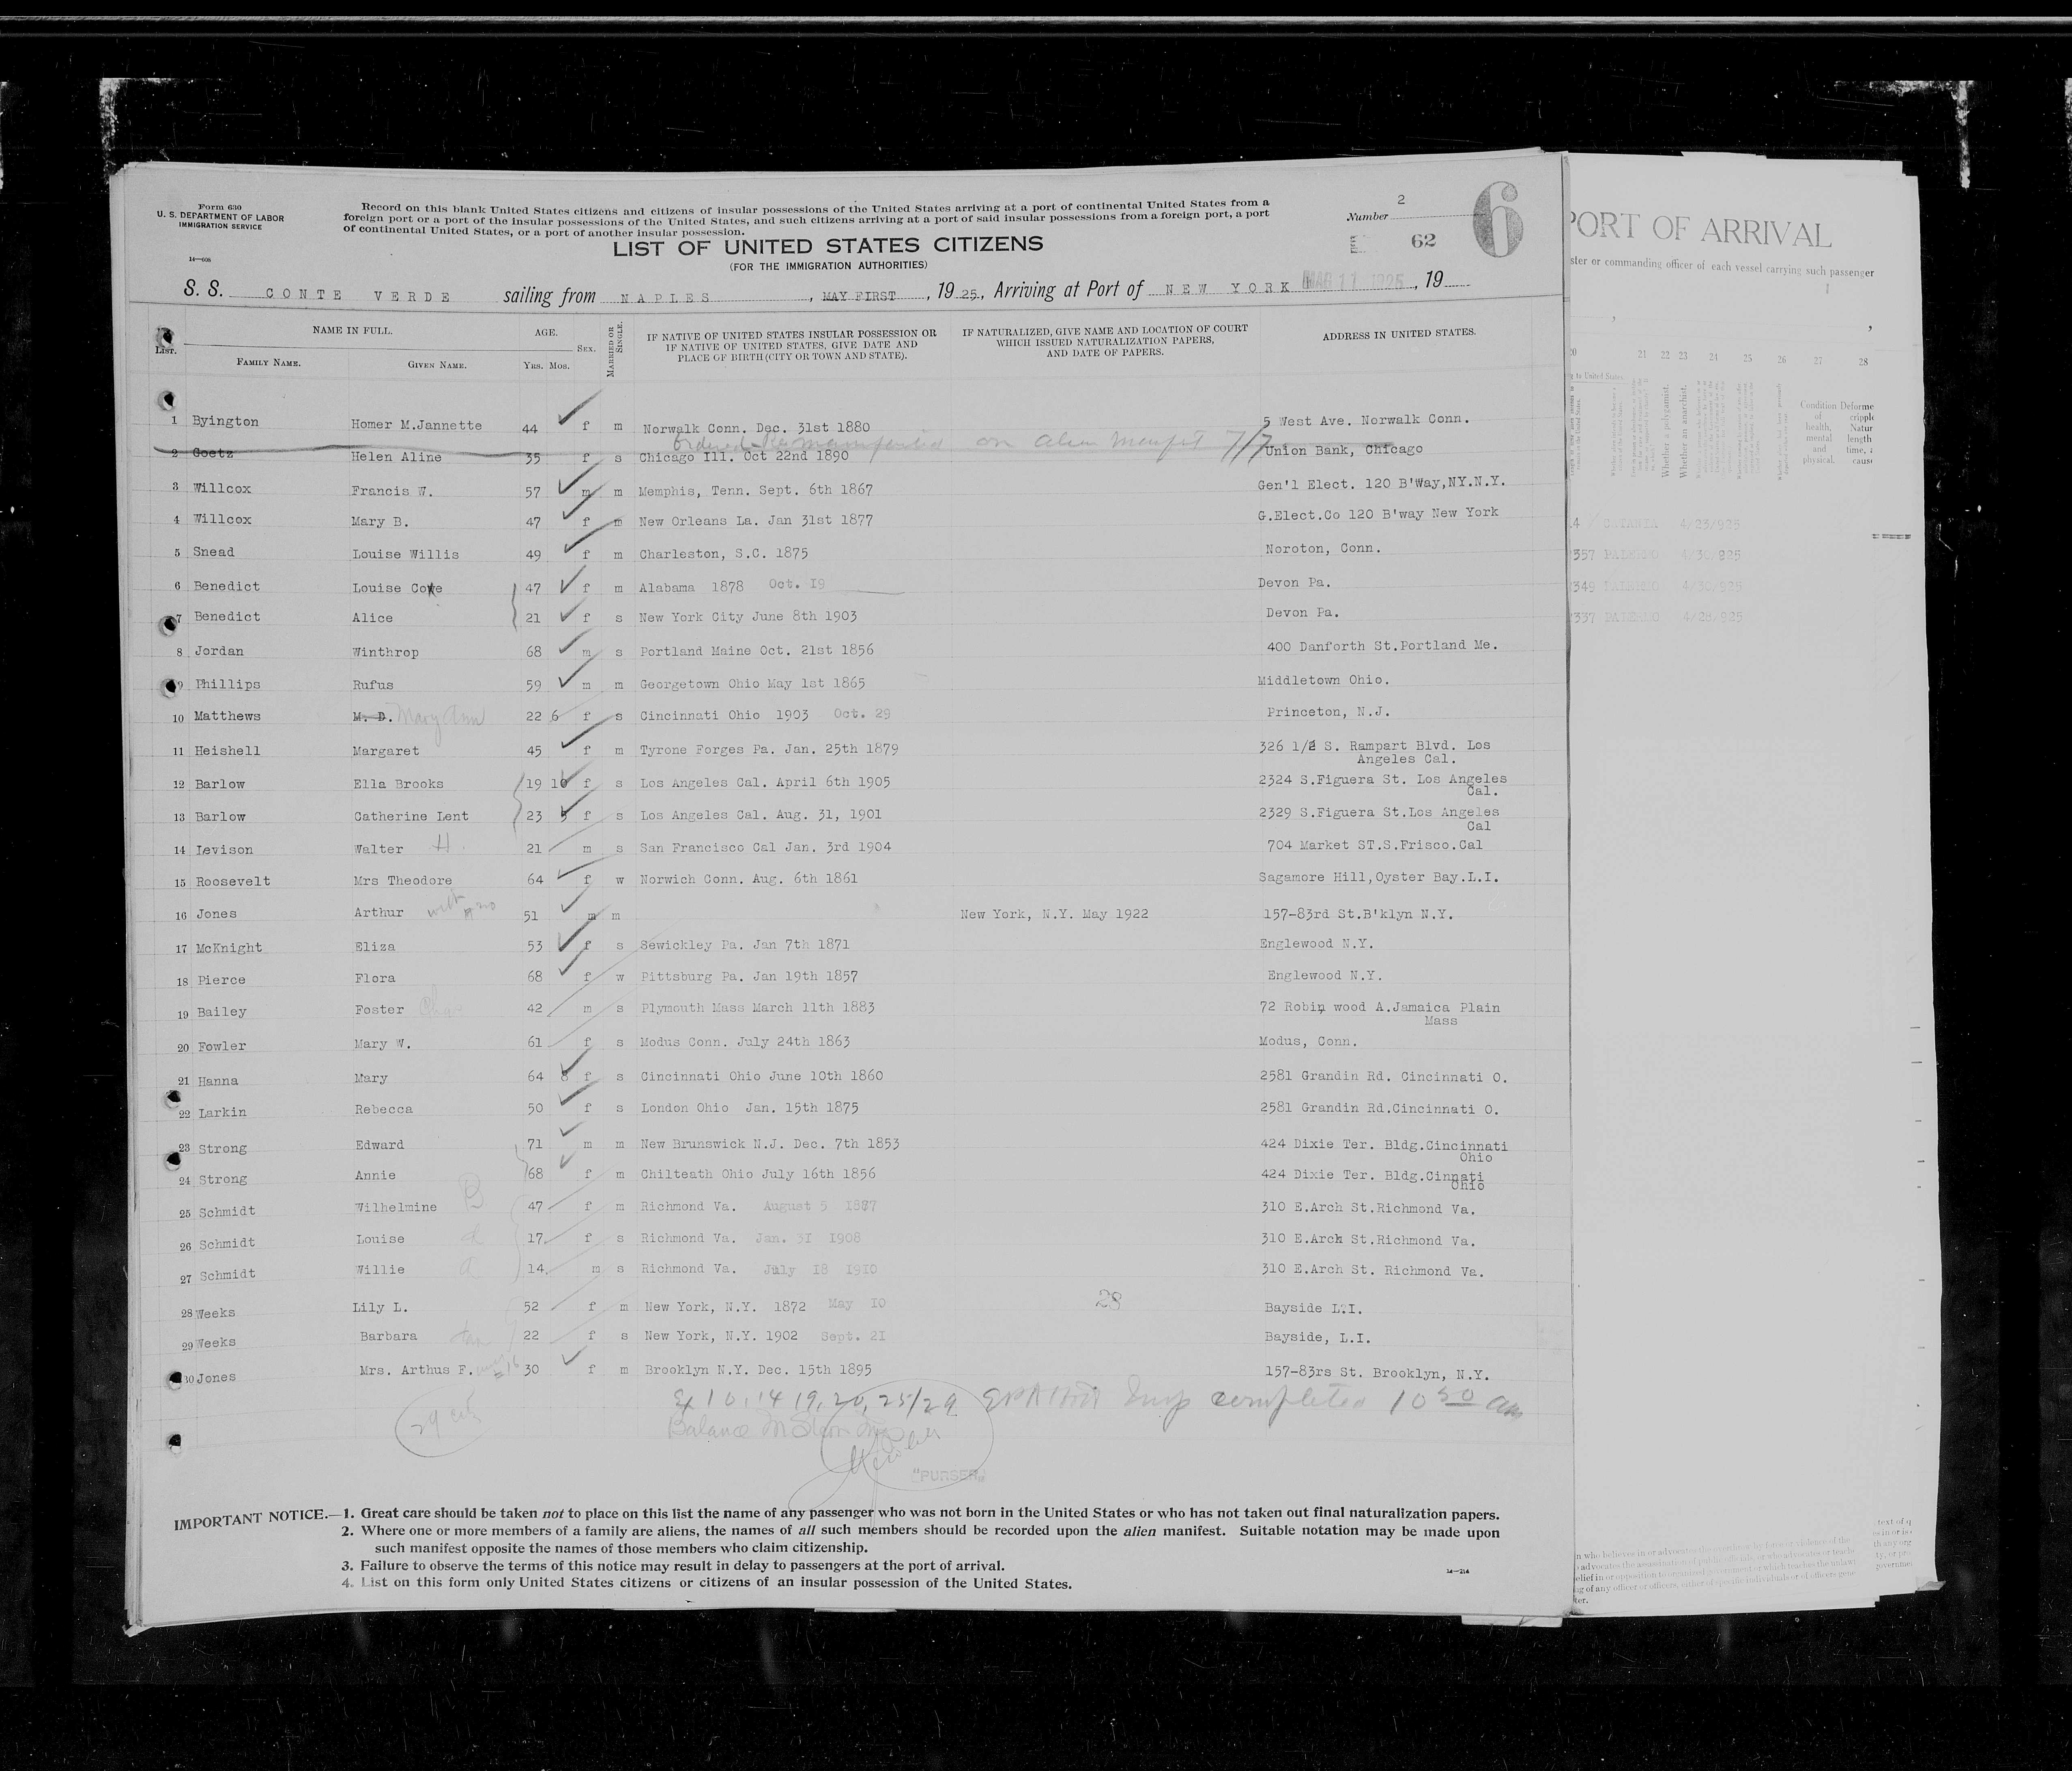 Form 630
U. S. DEPARTMENT OF LABOR
IMMIGRATION SERVICE
14—608
Record on this blank United States citizens and citizens of insular possessions of the United States arriving at a port of continental United States from a
foreign port or a port of the insular possessions of the United States, and such citizens arriving at a port of said insular possessions from a foreign port, a port
of continental United States, or a port of another insular possession.
Number 2
6
62
LIST OF UNITED STATES CITIZENS
(FOR THE IMMIGRATION AUTHORITIES)
S. S. CONTE VERDE sailing from NAPLES, MAY FIRST, 1925, Arriving at Port of NEW YORK 11 1925, 19
LIST. NAME IN FULL. FAMILY NAME. GIVEN NAME. AGE. YRS. MOS. SEX. MARRIED OR SINGLE.
IF NATIVE OF UNITED STATES INSULAR POSSESSION OR
IF NATIVE OF UNITED STATES, GIVE DATE AND
PLACE OF BIRTH (CITY OR TOWN AND STATE).
IF NATURALIZED, GIVE NAME AND LOCATION OF COURT
WHICH ISSUED NATURALIZATION PAPERS,
AND DATE OF PAPERS.
ADDRESS IN UNITED STATES.
1 Byington Homer M.Jannette 44 f m Norwalk Conn. Dec. 31st 1880 5 West Ave. Norwalk Conn.
ordered on alien
2 Goetz Helen Aline 35 f s Chicago Ill. Oct 22nd 1890 Union Bank, Chicago
3 Willcox Francis W. 57 m m Memphis, Tenn. Sept. 6th 1867 Gen'l Elect. 120 B'Way,NY.N.Y.
4 Willcox Mary B. 47 f m New Orleans La. Jan 31st 1877 G.Elect.Co 120 B'way New York
5 Snead Louise Willis 49 f m Charleston, S.C. 1875 Noroton, Conn.
6 Benedict Louise 47 f m Alabama 1878 Oct. 19 Devon Pa.
7 Benedict Alice 21 f s New York City June 8th 1903 Devon Pa.
8 Jordan Winthrop 68 m s Portland Maine Oct. 21st 1856 400 Danforth St.Portland Me.
9 Phillips Rufus 59 m m Georgetown Ohio May 1st 1865 Middletown Ohio.
10 Matthews M. D. Mary Ann 22 6 f s Cincinnati Ohio 1903 Oct. 29 Princeton, N.J.
11 Heishell Margaret 45 f m Tyrone Forges Pa. Jan. 25th 1879 326 1/2 S. Rampart Blvd. Los
Angeles Cal.
12 Barlow Ella Brooks 19 10 f s Los Angeles Cal. April 6th 1905 2324 S.Figuera St. Los Angeles
Cal.
13 Barlow Catherine Lent 23 f s Los Angeles Cal. Aug. 31, 1901 2329 S.Figuera St.Los Angeles
Cal
14 Levison Walter H. 21 m s San Francisco Cal Jan. 3rd 1904 704 Market ST.S.Frisco.Cal
15 Roosevelt Mrs Theodore 64 f w Norwich Conn. Aug. 6th 1861 Sagamore Hill,Oyster Bay.L.I.
16 Jones Arthur with #30 51 m m New York, N.Y. May 1922 157-83rd St.B'klyn N.Y.
17 McKnight Eliza 53 f s Sewickley Pa. Jan 7th 1871 Englewood N.Y.
18 Pierce Flora 68 f w Pittsburg Pa. Jan 19th 1857 Englewood N.Y.
19 Bailey Foster 42 m s Plymouth Mass March 11th 1883 72 Robin wood A.Jamaica Plain
Mass
20 Fowler Mary W. 61 f s Modus Conn. July 24th 1863 Modus, Conn.
21 Hanna Mary 64 8 f s Cincinnati Ohio June 10th 1860 2581 Grandin Rd. Cincinnati O.
22 Larkin Rebecca 50 f s London Ohio Jan. 15th 1875 2581 Grandin Rd.Cincinnati O.
23 Strong Edward 71 m m New Brunswick N.J. Dec. 7th 1853 424 Dixie Ter. Bldg.Cincinnati
Ohio
24 Strong Annie 68 f m Chilteath Ohio July 16th 1856 424 Dixie Ter. Bldg.Cinnati
Ohio
25 Schmidt Wilhelmine B 47 f m Richmond Va. August 5 310 E.Arch St.Richmond Va.
26 Schmidt Louise 17 f s Richmond Va. Jan. 31 1908 310 E.Arch St.Richmond Va.
27 Schmidt Willie 14 m s Richmond Va. July 18 1910 310 E.Arch St. Richmond Va.
28 Weeks Lily L. 52 f m New York, N.Y. 1872 May 10 28 Bayside L.I.
29 Weeks Barbara 22 f s New York, N.Y. 1902 Sept. 21 Bayside, L.I.
30 Jones Mrs. Arthus F. 30 f m Brooklyn N.Y. Dec. 15th 1895 157-83rs St. Brooklyn, N.Y.
10, 14 19, 20, 25/29 Insp completed 10 30 am
29
Balance
"PURSER"
IMPORTANT NOTICE.—1. Great care should be taken not to place on this list the name of any passenger who was not born in the United States or who has not taken out final naturalization papers.
2. Where one or more members of a family are aliens, the names of all such members should be recorded upon the alien manifest. Suitable notation may be made upon
such manifest opposite the names of those members who claim citizenship.
3. Failure to observe the terms of this notice may result in delay to passengers at the port of arrival.
4. List on this form only United States citizens or citizens of an insular possession of the United States.
14—214
PORT OF ARRIVAL
ster or commanding officer of each vessel carrying such passenger
21 22 23 24 25 26 27 28
Whether a polygamist.
Whether an anarchist.
Condition of health, mental and physical.
CATANIA 4/23/925
357 PALERMO 4/30/925
349 PALERMO 4/30/925
337 PALERMO 4/28/925